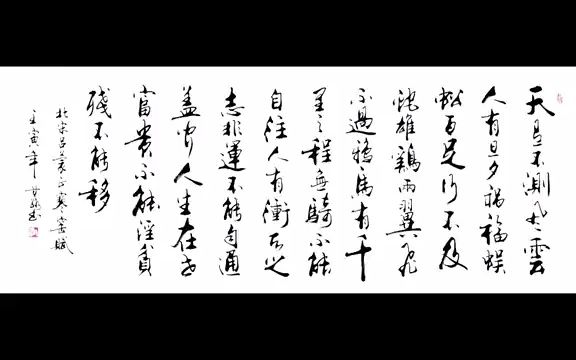 天有不測风雲
人有旦夕禍福蜈
蚣百足行不及
蛇雄鷄兩翼飛
不過鴉馬有千
里之程無騎不能
自往人有衝天之
志非運不能自通
盖闻人生在世
富貴不能淫貧
賤不能移
北宋吕蒙正寒窑赋
壬寅年